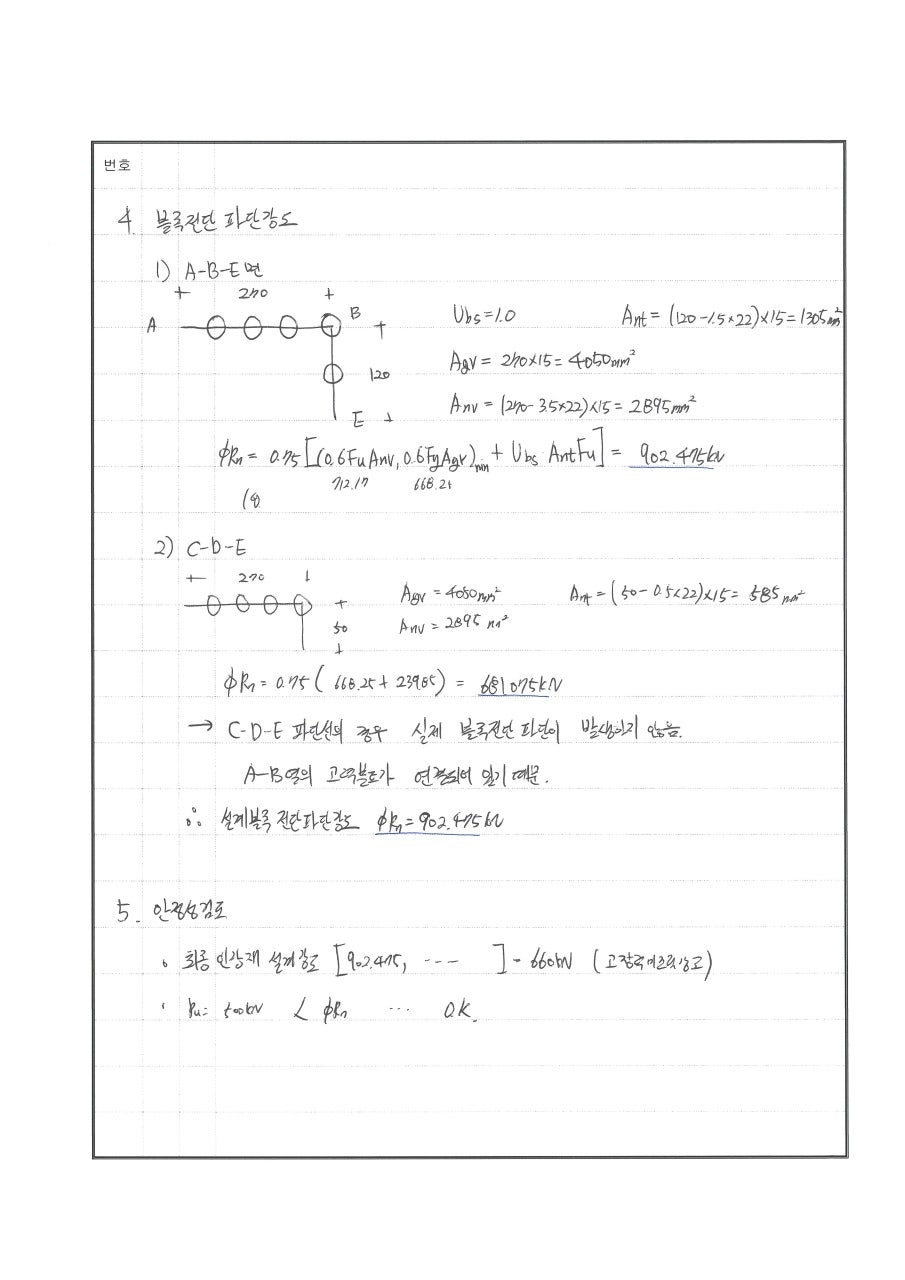 번호
4. 블록전단 파단강도
1) A-B-E 면
270
A B
120
E
Ubs = 1.0 Ant = (120 - 1.5×22)×15 = 1305mm²
Agv = 270×15 = 4050mm²
Anv = (270 - 3.5×22)×15 = 2895mm²
ϕRn = 0.75 [(0.6FuAnv, 0.6FyAgv)min + Ubs AntFu] = 902.475kN
712.17 668.25
2) C-D-E
270
50
Agv = 4050mm² Ant = (50 - 0.5×22)×15 = 585mm²
Anv = 2895 mm²
ϕRn = 0.75 ( 668.25 + 239.85) = 681.075kN
→ C-D-E 파단선의 경우 실제 블록전단 파단이 발생하지 않음.
A-B열의 고력볼트가 연결되어 있기 때문.
∴ 설계블록 전단파단강도 ϕRn = 902.475kN
5. 안정성검토
◦ 최종 인장재 설계강도 [902.475, --- ] = 660kN
Pu = 500kN < ϕRn ... O.K.